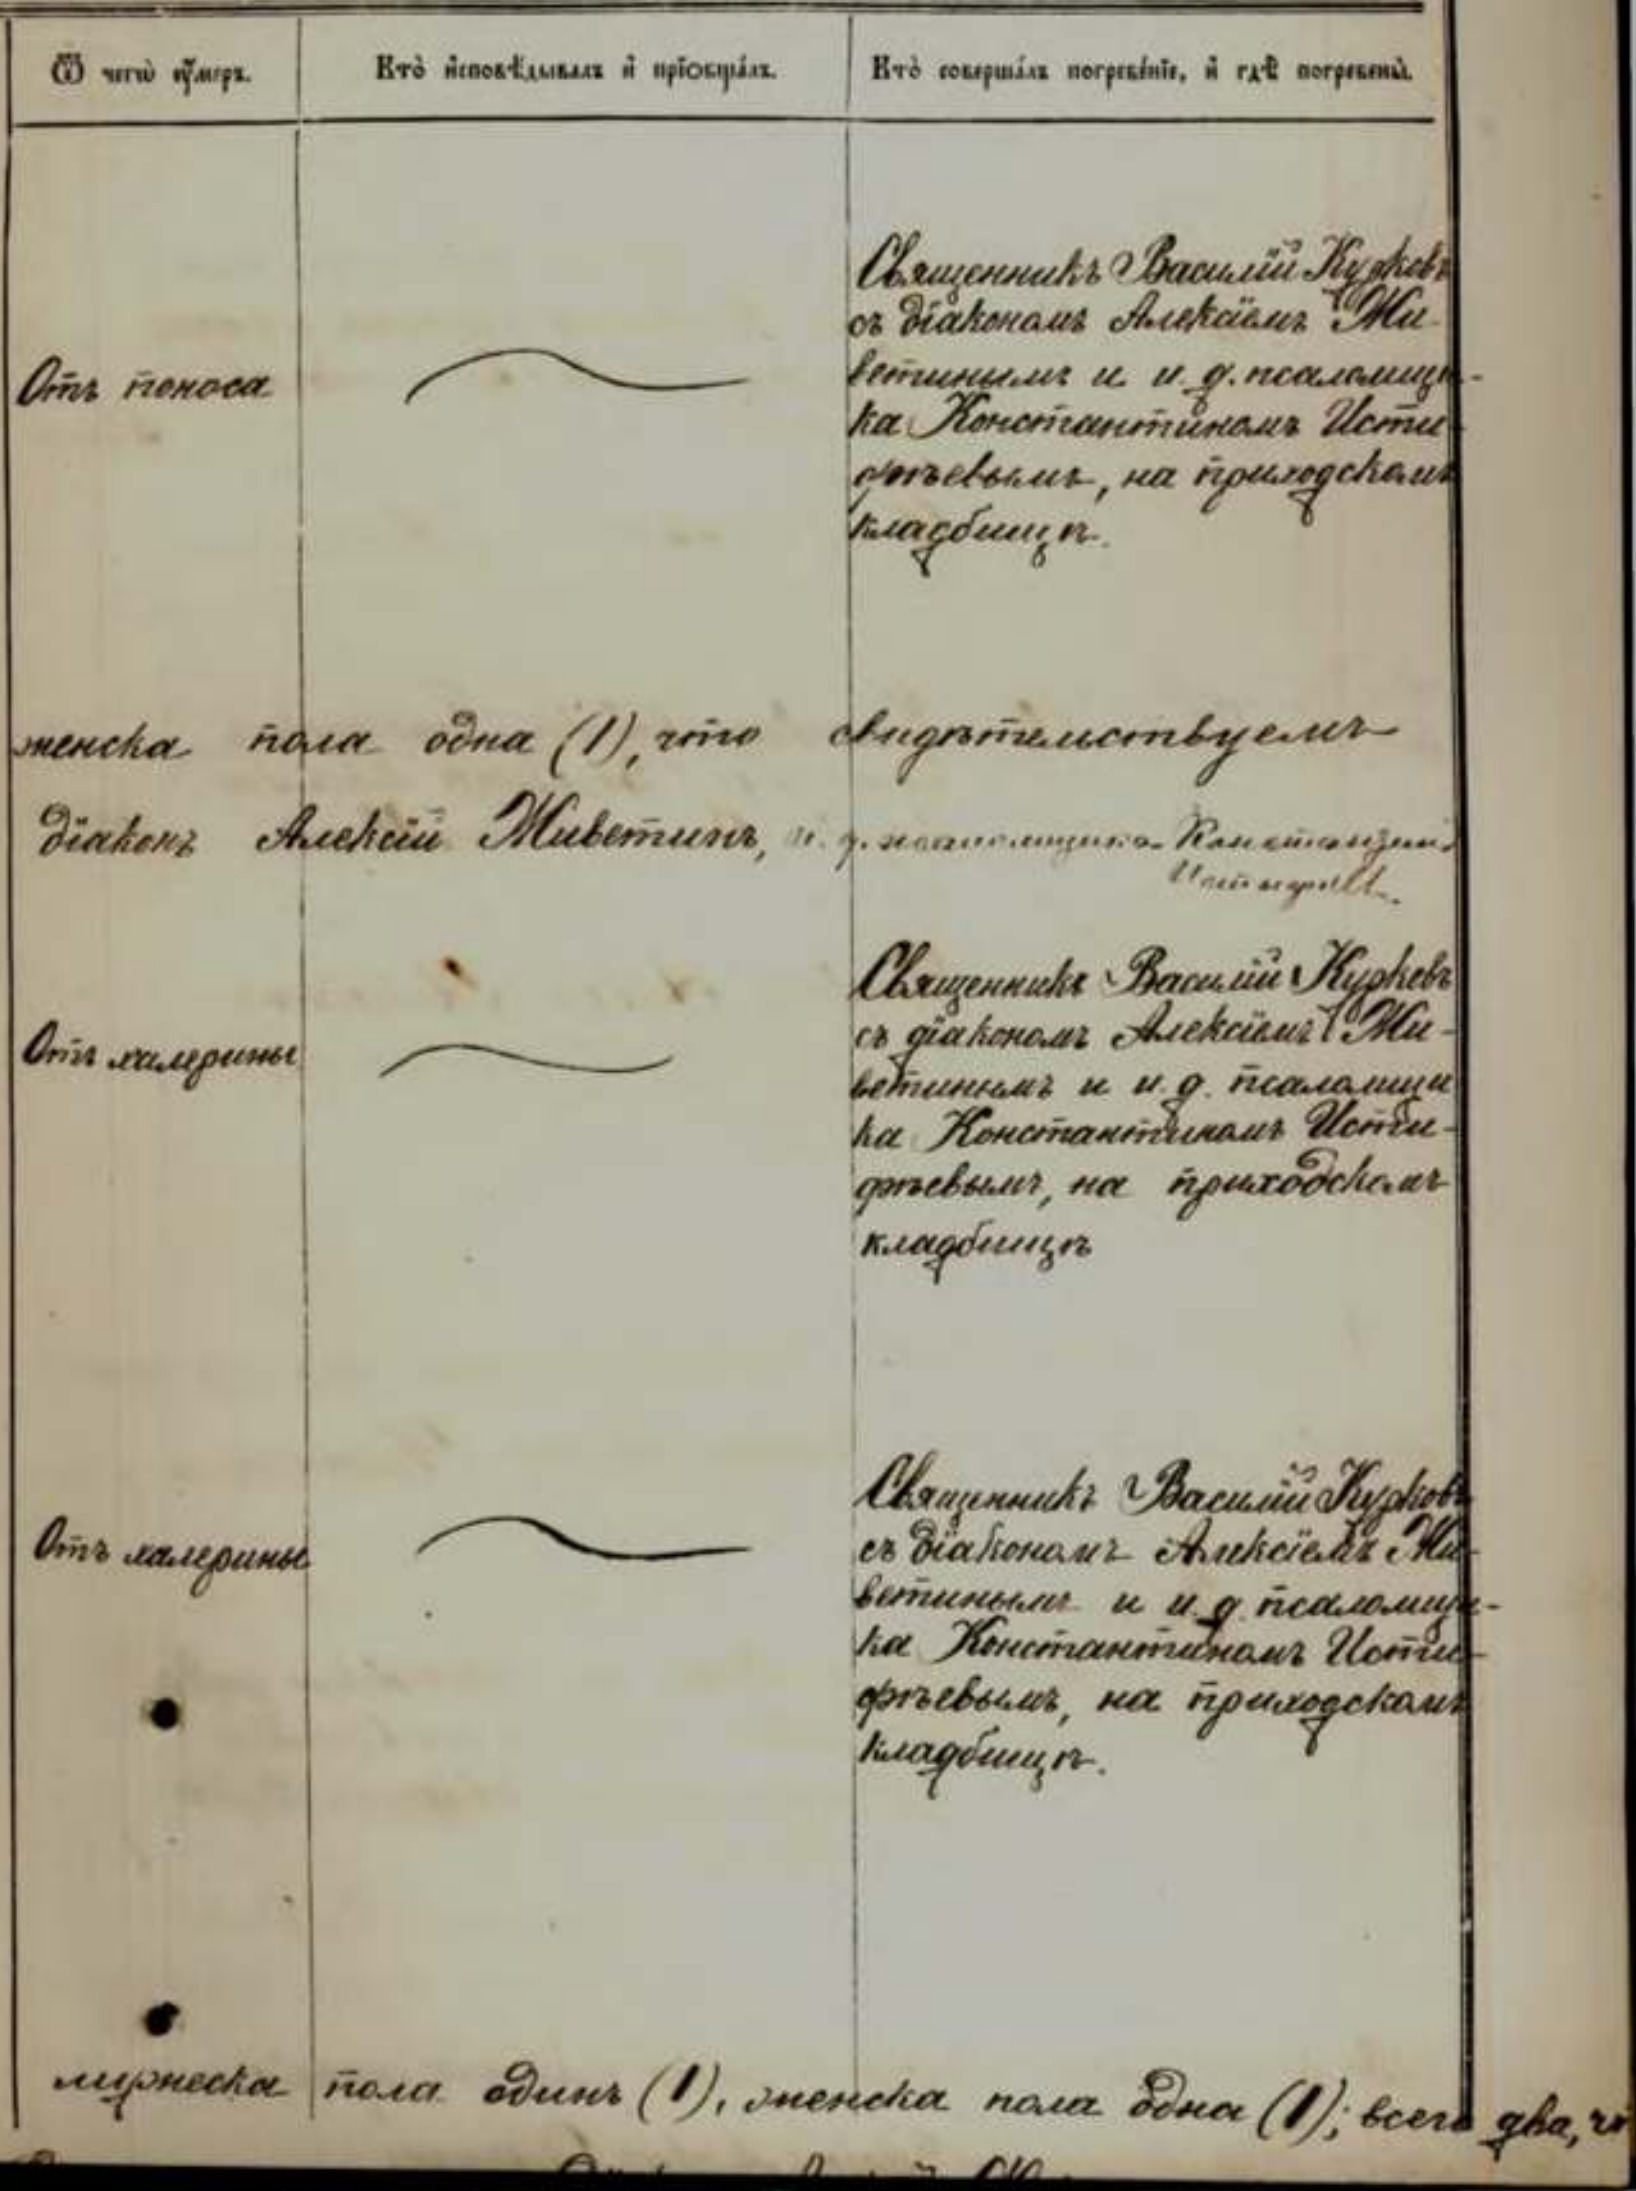 Ѿ чегѡ ᲂу҆́меръ.
Кто̀ и҆сповѣ́дывалъ и҆ прїѡбща́лъ.
Кто̀ соверша́лъ погребе́нїе, и҆ гдѣ̀ погребены̀.
Отъ поноса
Священникъ Василій
съ діакономъ Алексіемъ Жи-
ветинымъ и и. д. псаломщи-
ка Константиномъ Исти-
фѣевымъ, на приходскомъ
кладбищѣ.
женска пола одна (1), что свидѣтельствуемъ
діаконъ Алексій Живетинъ, и. д. псаломщика Константинъ
Отъ малерины
Священникъ Василій
съ діакономъ Алексіемъ Жи-
ветинымъ и и. д. псаломщи
ка Константиномъ Исти-
фѣевымъ, на приходскомъ
кладбищѣ
Отъ малерины
Священникъ Василій
съ діакономъ Алексіемъ Жи-
ветинымъ и и. д. псаломщи-
ка Константиномъ Исти-
фѣевымъ, на приходскомъ
кладбищѣ.
мужеска пола одинъ (1), женска пола одна (1); всего два, что